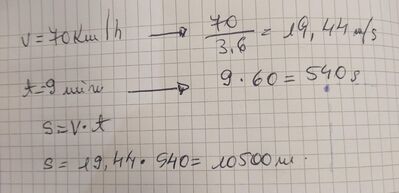 v = 70 Km/h → 70/3,6 = 19,44 m/s
t = 9 min → 9 · 60 = 540 s
s = v · t
s = 19,44 · 540 = 10500 m.